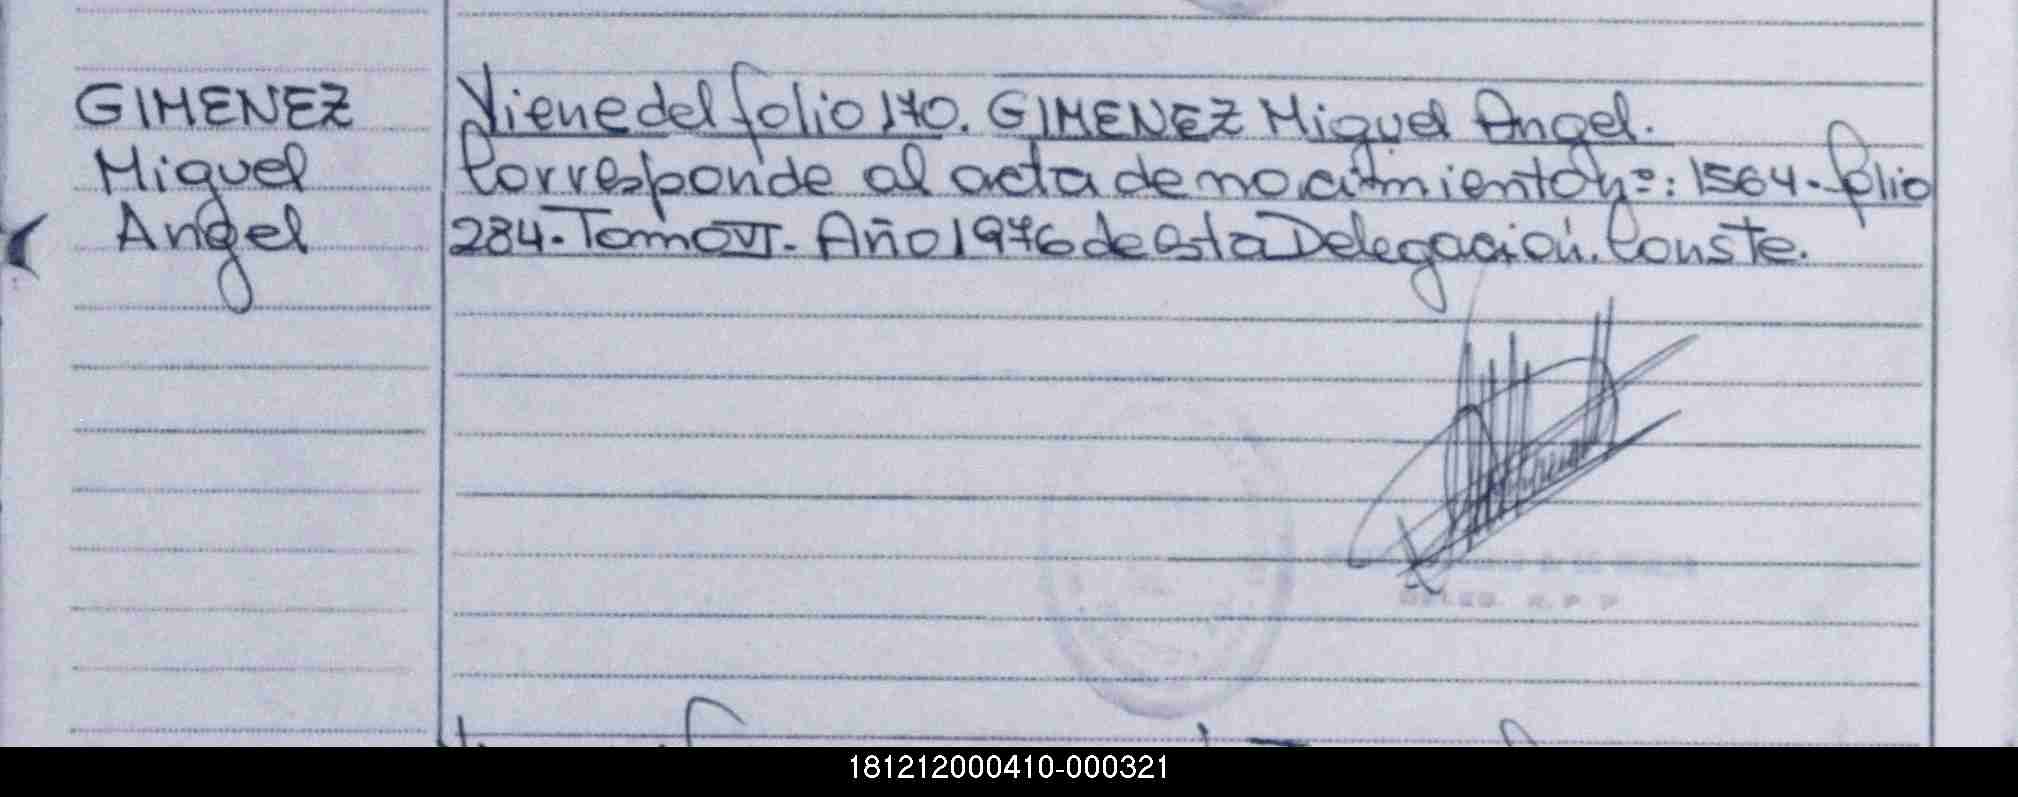 GIMENEZ
Miguel
Angel
Viene del folio 170. GIMENEZ Miguel Angel.
Corresponde al acta de nacimiento nº: 1564. folio
284. Tomo VI. Año 1976 de esta Delegación. Conste.
181212000410-000321